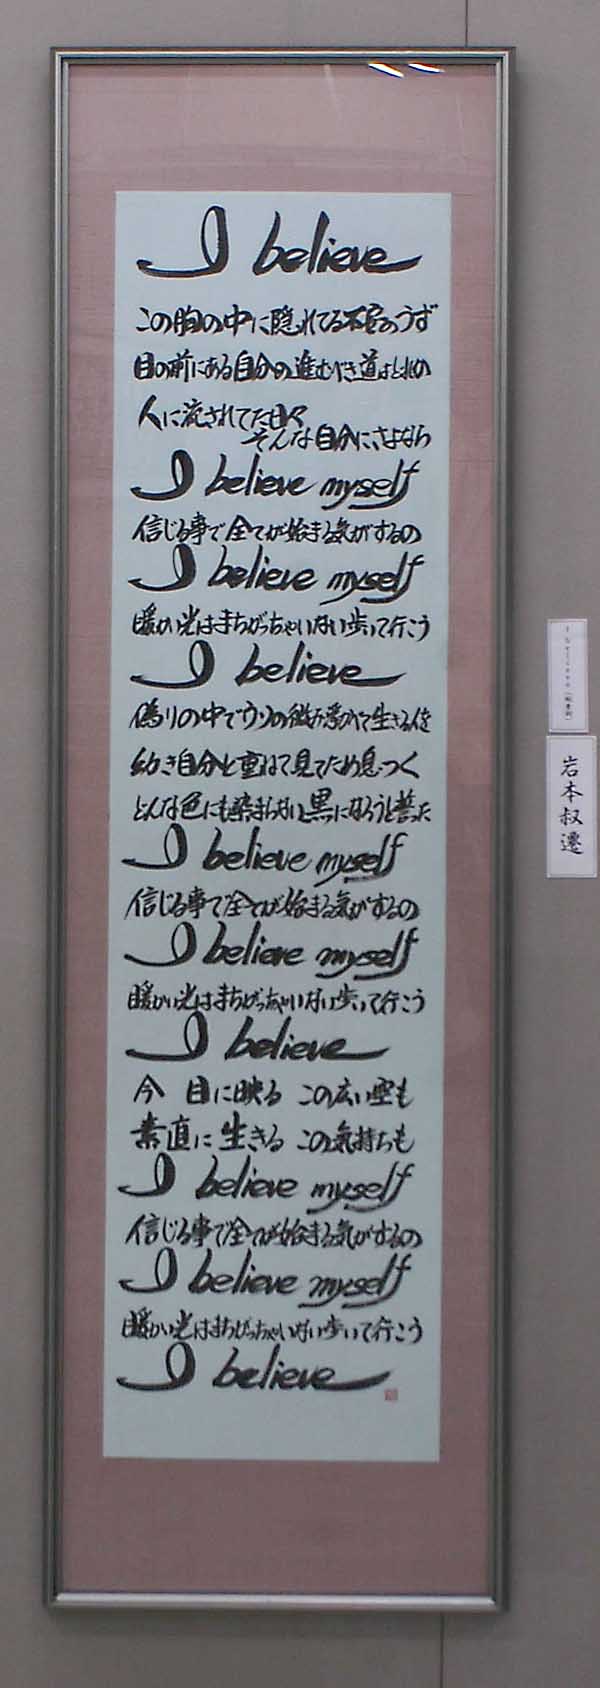 I believe
この胸の中に隠れてる不安のうず
目の前にある自分の進むべき道はどれか
人に流されてた日々
そんな自分にさよなら
I believe myself
信じる事で全てが始まる気がするの
I believe myself
暖かい光はまちがっちゃいない歩いて行こう
I believe
偽りの中でウソの微み浮かべて生きる人を
幼き自分と重ねて見てため息つく
どんな色にも染まらない黒になろうと誓った
I believe myself
信じる事で全てが始まる気がするの
I believe myself
暖かい光はまちがっちゃいない歩いて行こう
I believe
今 目に映る この広い空も
素直に 生きる この気持ちも
I believe myself
信じる事で全てが始まる気がするの
I believe myself
暖かい光はまちがっちゃいない歩いて行こう
I believe
I believe
岩本叔遷